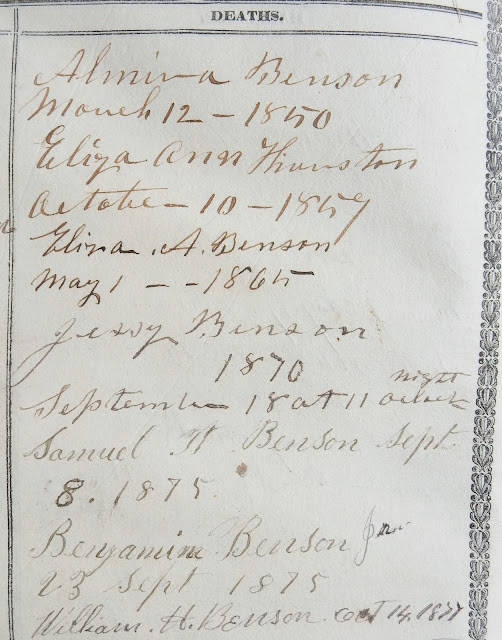 DEATHS.
Almira Benson
March 12 - 1850
Eliza Ann Thurston
October - 10 - 1859
A. Benson
May 1 - - 1865
Jessy Benson
1870
night
September 18 at 11 oclock
Samuel H Benson Sept
8. 1875
Benjamine Benson Jnr
23 Sept 1875
William. H. Benson. Oct 14, 1877